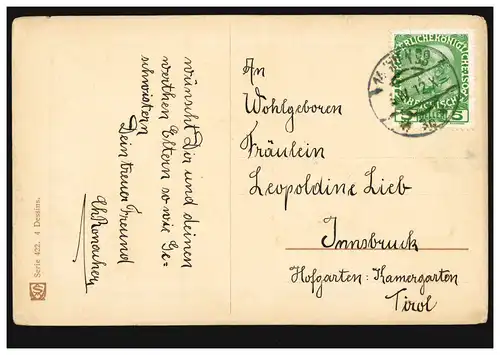 wünscht Dir und deinen
werthen Eltern sowie Ge-
schwistern
Dein treuer Freund
Serie 422. 4 Dessins.
An
Wohlgeboren
Fräulein
Leopoldine Lieb
Innsbruck
Hofgarten: Kamergarten
Tirol
5